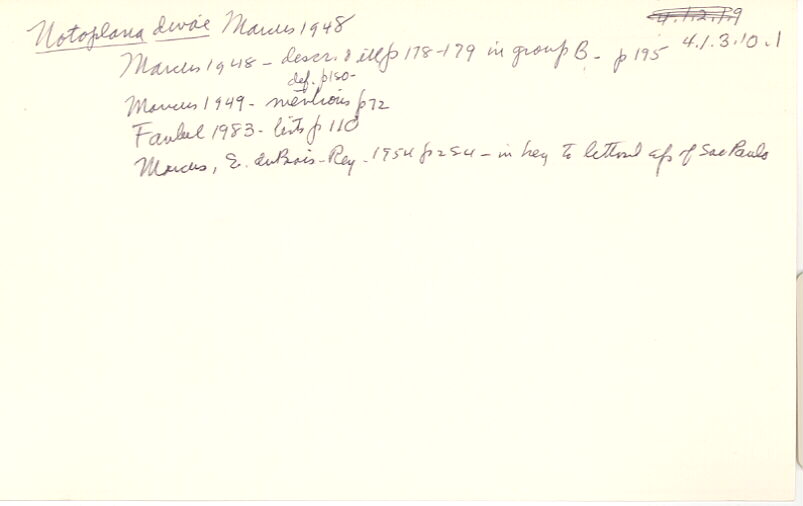 Notoplana divae Marcus 1948
4.1.2.1.9
4.1.3.10.1
Marcus 1948 - descr. & ill p 178-179 in group B - p 195
def. p180-
Marcus 1949 - mentions p72
Faubel 1983 - lists p 110
Marcus, E. duBois-Rey - 1954 p254 - in key to littoral sps of Sao Paulo